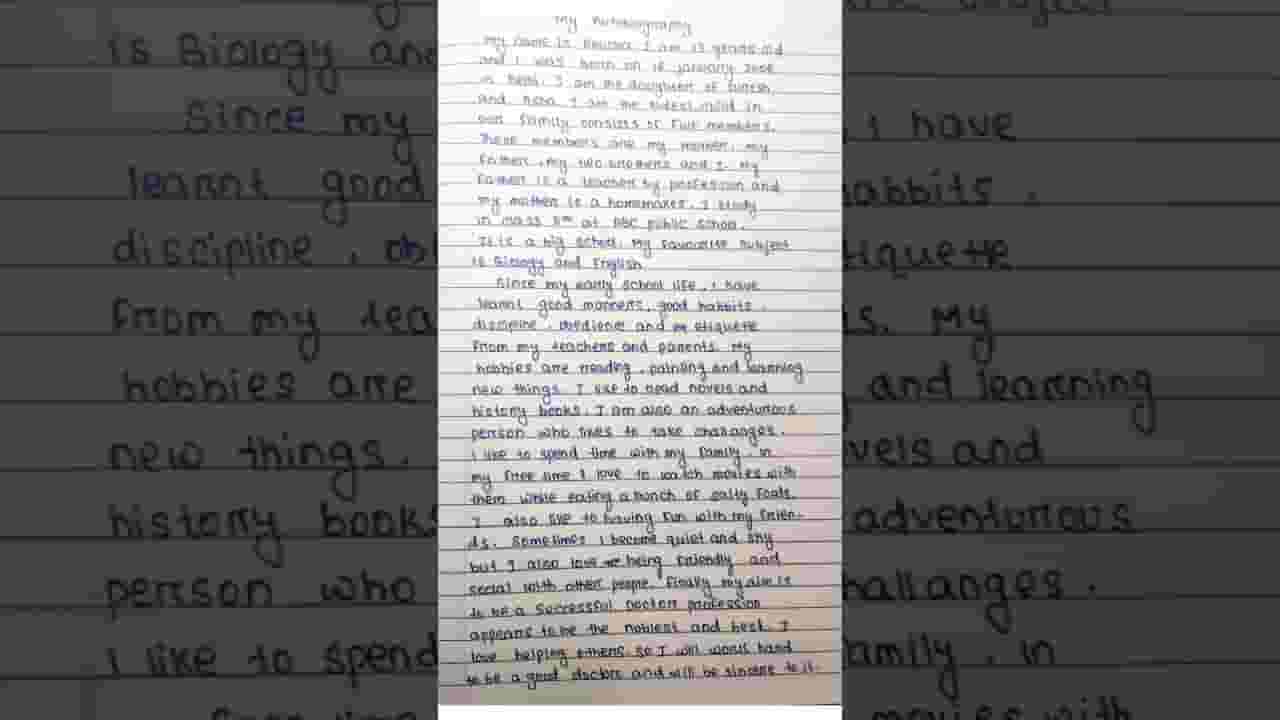 My Autobiography
My name is I am 13 years old
and I was born on 16 January
in I am the daughter of Suresh
and I am the eldest child in
our family consists of five members.
These members are my mother, my
father, my two brothers and I. My
father is a teacher by profession and
my mother is a homemaker. I study
in class 8th at ABC public school.
It is a big school. My favourite subject
is Biology and English.
Since my early school life, I have
learnt good manners, good habbits,
discipline, obedience and etiquete
from my teachers and parents. My
hobbies are reading, painting and learning
new things. I like to read novels and
history books. I am also an adventurous
person who likes to take challanges.
I like to spend time with my family. in
my free time I love to watch movies with
them while eating a bunch of salty foods.
I also like to having fun with my frien-
ds. Sometimes I become quiet and shy
but I also love being friendly and
social with other people. Finally my aim is
to be a successful Doctor profession
appears to be the noblest and best. I
love helping others so I will work hard
to be a good doctor and will be sincere to it.